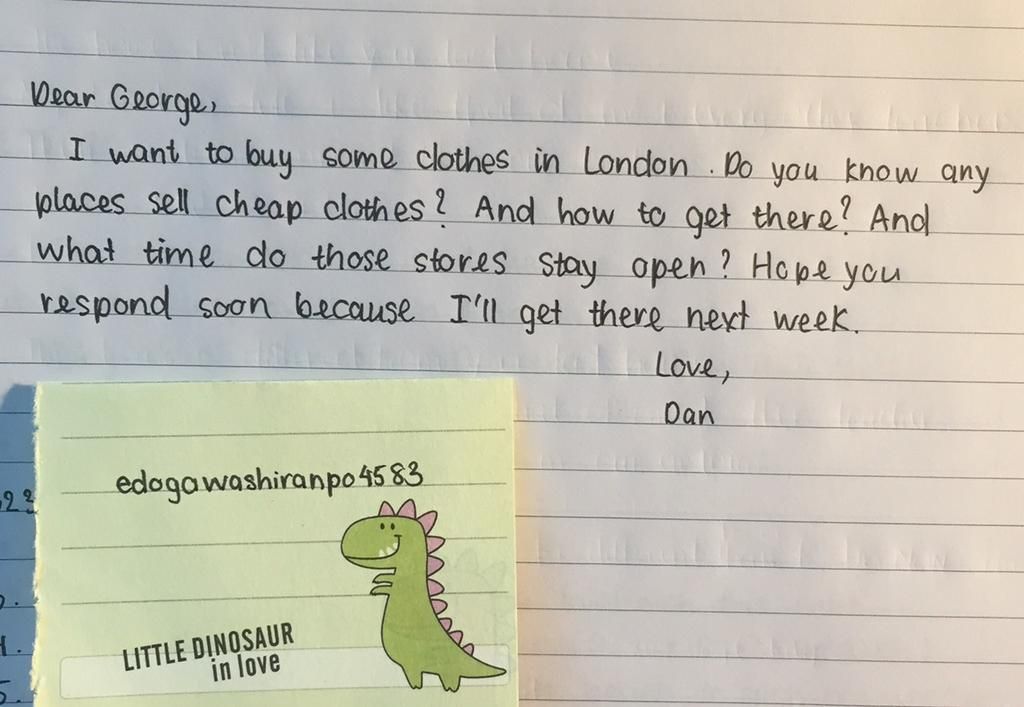 Dear George,
I want to buy some clothes in London. Do you know any
places sell cheap clothes? And how to get there? And
what time do those stores stay open? Hope you
respond soon because I'll get there next week.
Love,
Dan
edogawashiranpo4583
LITTLE DINOSAUR
in love